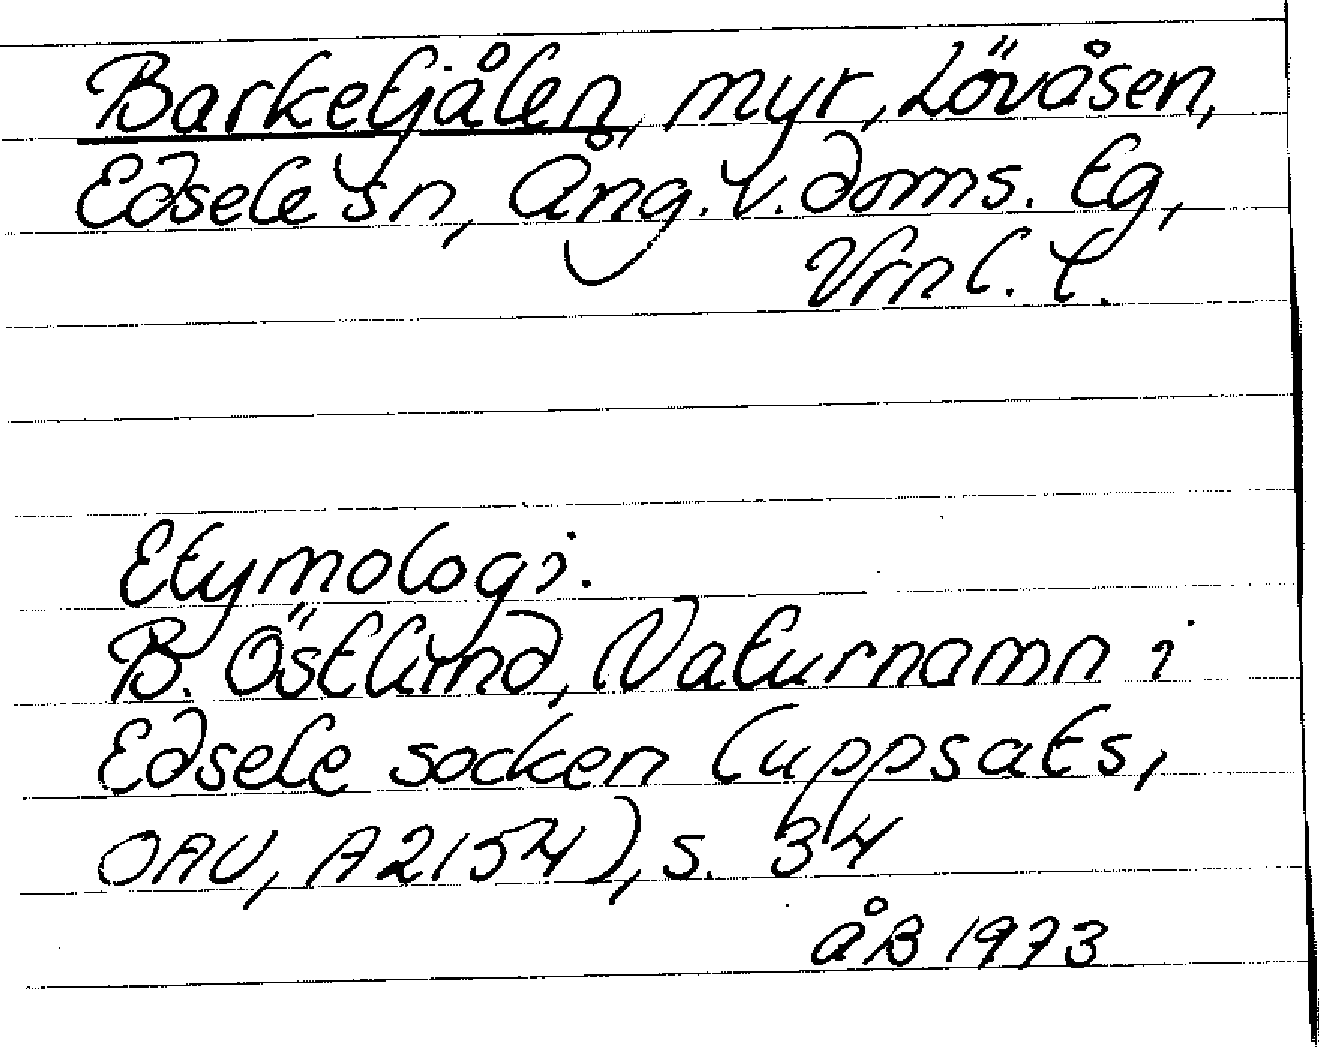 Barketjålen, myr, Lövåsen,
Edsele sn, Ång. v. doms. tg,
Vrnl. l.
Etymologi.
B. Östlund, Naturnamn i
Edsele socken (uppsats,
OAU, A2154), s. 34
åB 1973